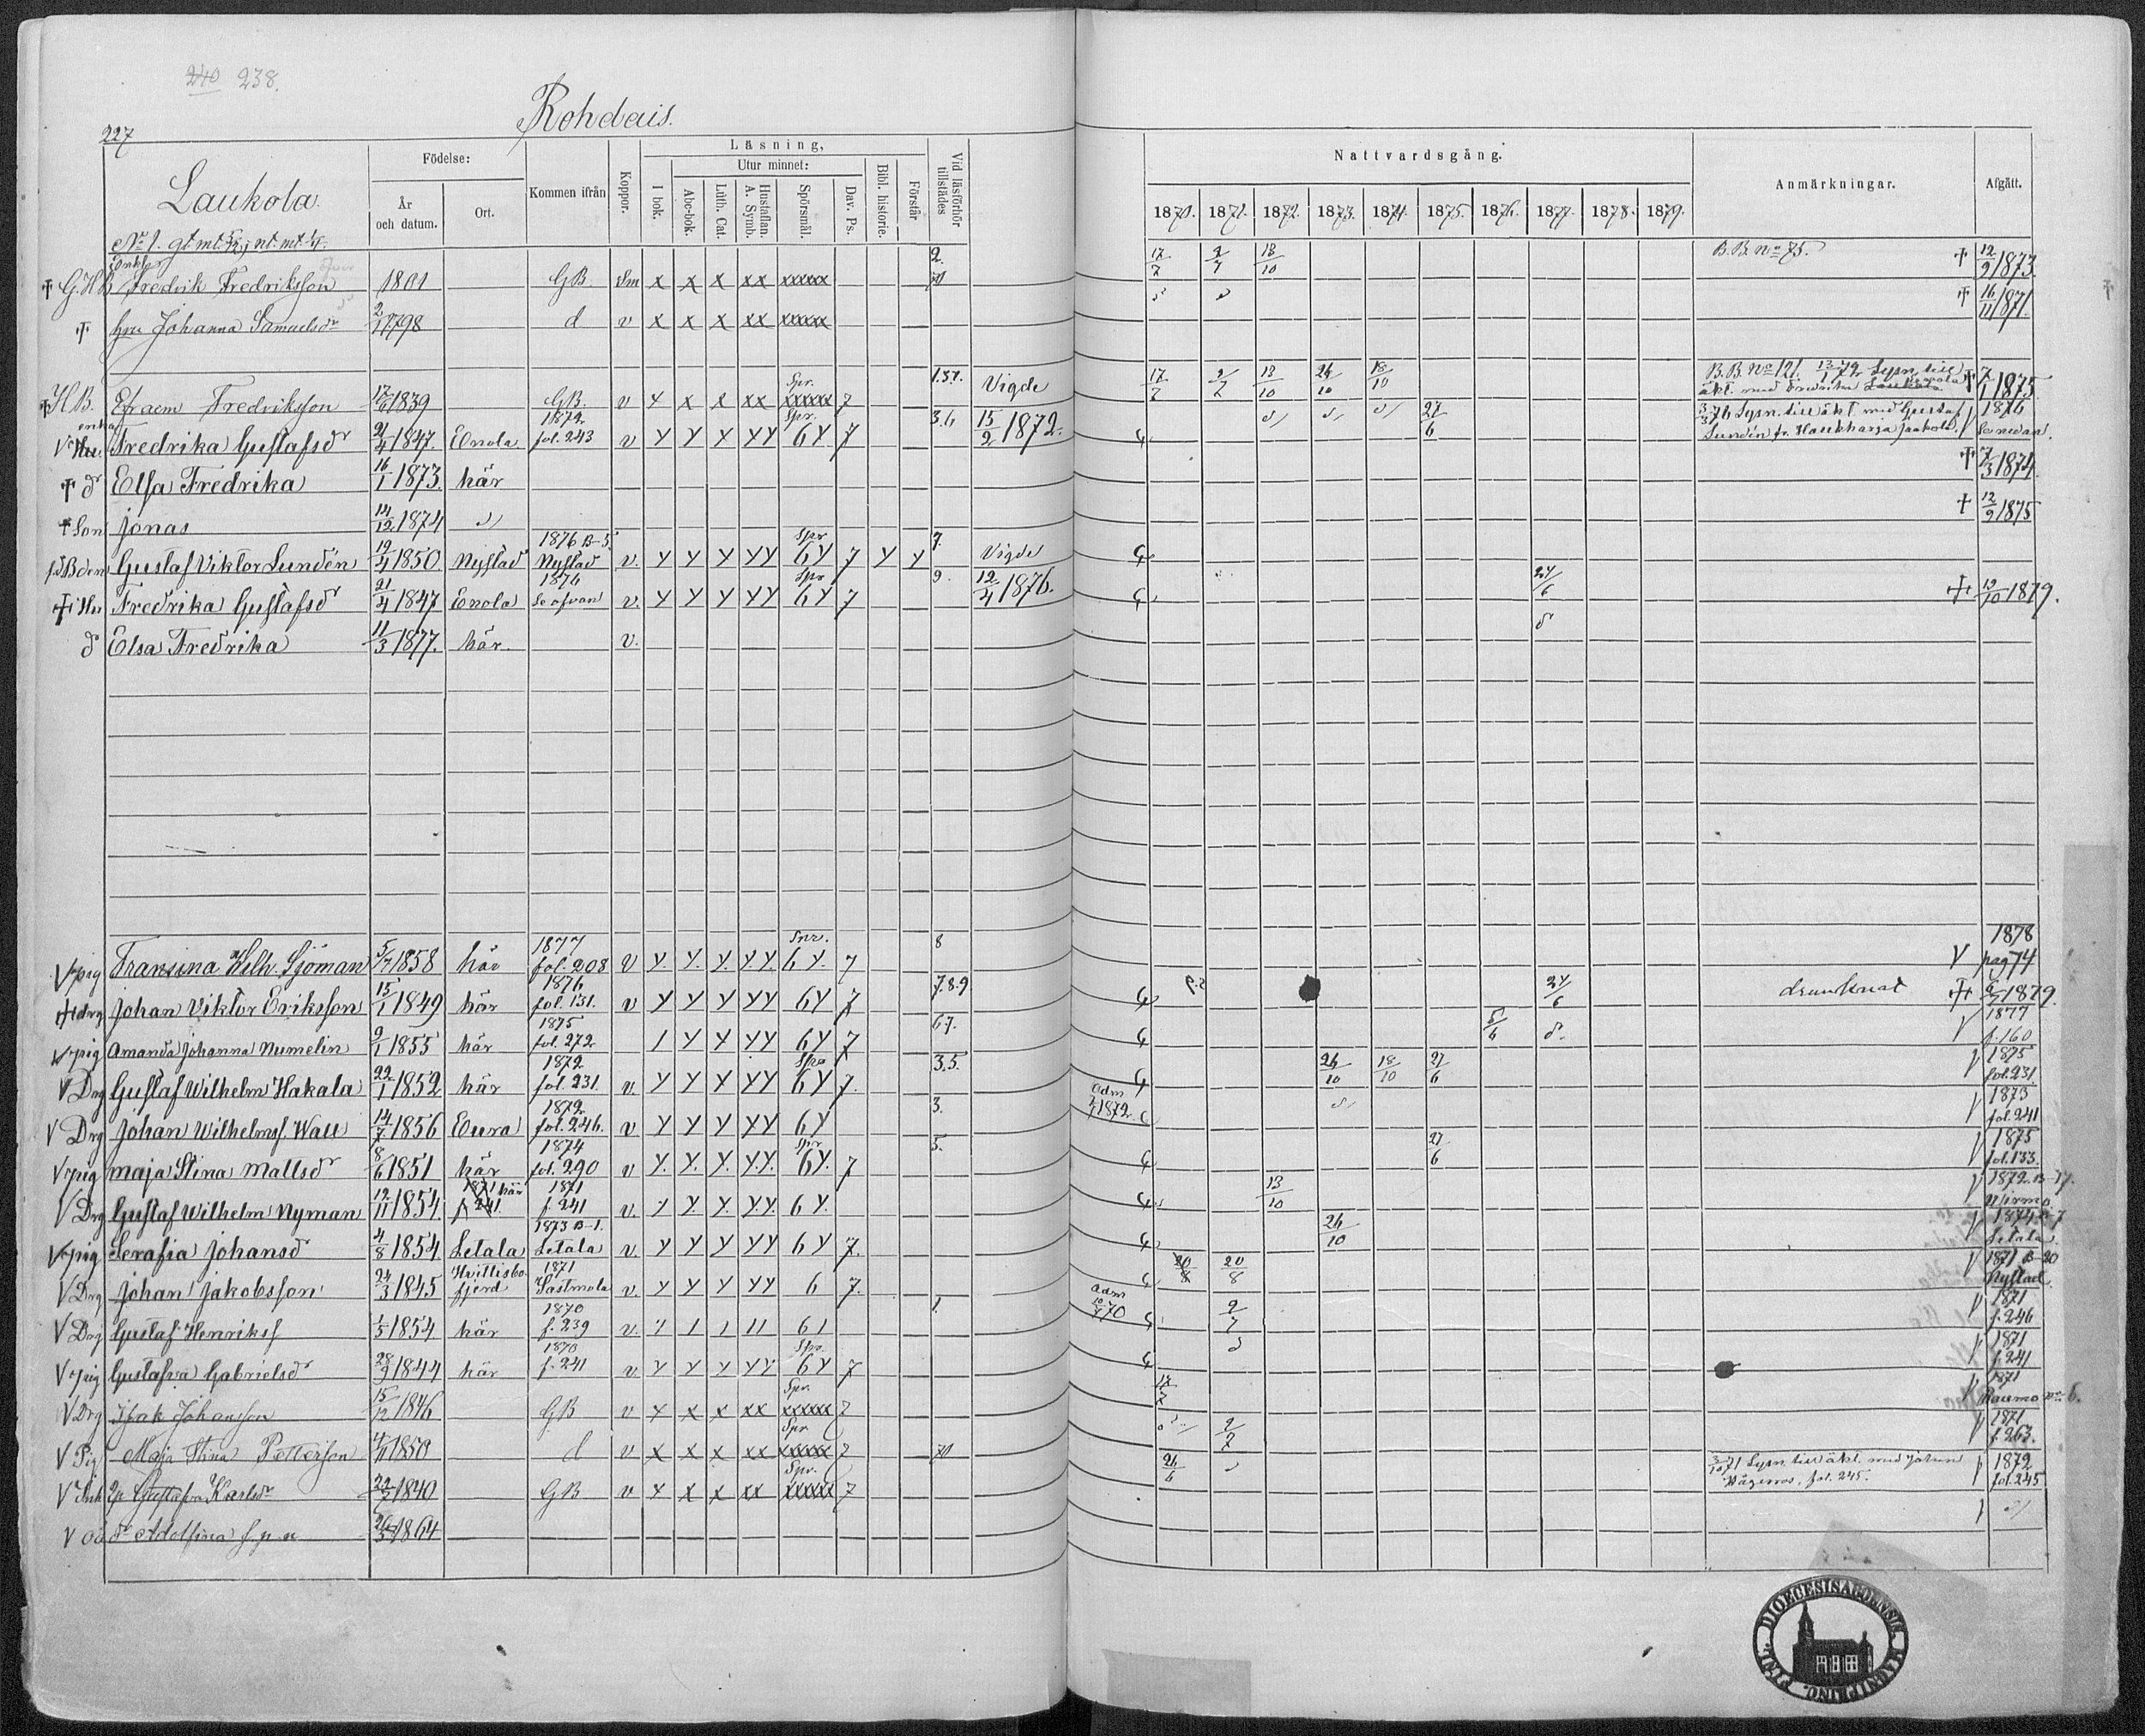 240 238.
Rohdais.
227
Laukola.
Födelse:
År och datum.
Ort.
Kommen ifrån
Koppor.
Läsning,
I bok.
Utur minnet:
Abc-bok.
Luth. Cat.
Hustaflan. A. Symb.
Spörsmål.
Dav. Ps.
Bibl. historie.
Förstår
Vid läsförhör tillstädes
Nattvardsgång.
1870. 1871. 1872. 1873. 1874. 1875. 1876. 1877. 1878. 1879.
Anmärkningar.
Afgått.
No 1. gt mt.
Enkl.
† G.H.B Fredrik Fredriksson 1801 GB. Sm x x x xx xxxxx 2. 17/7 2/7 13/10 B.B. No 75. † 12/9 1873
† hu Johanna Samuelsdr 2/1 1798 d v x x x xx xxxxx † 16/11 1871.
† H B. Efraem Fredriksson 1839 GB. v x x x xx Spr. xxxxx 7 1.3.7. Vigde 17/7 2/7 13/10 26/10 18/10 B.B. No 121. Lysn. till äkt. med Fredrika † 7/1 1875
enka
V Hu. Fredrika Gustafsdr 21/4 1847. Enola 1872 fol. 243 v Y Y Y YY Spr. 6Y 7 3.6 15/2 1872. 27/6 Lysn. till äkt. med Gustaf Lundén fr. V 1876 Se nedan.
† d Elsa Fredrika 16/1 1873. här † 7/3 1874.
† Son Jonas 14/12 1874 † 12/9 1875
Gustaf Viktor Lundén 19/4 1850. Nystad 1876 B-5 Nystad v. Y Y Y YY Spr 6Y 7 Y Y 7. Vigde
† Hu Fredrika Gustafsdr 21/4 1847 Enola 1876 Se ofvan v. Y Y Y YY Spr 6Y 7 9. 12/4 1876. 24/6 † 12/10 1879.
d Elsa Fredrika 11/3 1877. här. v.
V pig Fransina Wilh. Sjöman 5/7 1858 här 1877 fol. 208 v Y. Y. Y. YY. Spr. 6Y. 7 8 V 1878 pag 74
† drg Johan Viktor Eriksson 15/1 1849 här 1876 fol. 131. v Y Y Y YY 6Y 7 7.8.9 24/6 drunknat † 1879.
V pig Amanda Johanna Numelin 9/1 1855 här 1875 fol. 272 1 Y Y YY 6Y 7 67. 5/6 V 1877 f. 160
V Drg Gustaf Wilhelm Hakala 22/1 1852 här 1872 fol. 231. v. Y Y Y YY Spr 6Y 7. 3.5. 26/10 18/10 27/6 V 1875 fol. 231.
V Drg Johan Wilhelmsf. Wall 14/7 1856 Eura 1872 fol. 246. v Y Y Y YY 6Y 3. Adm 1872. V 1873 fol. 241
V pig Maja Stina Mattsdr 8/6 1851 här 1874 fol. 290 v Y. Y. Y. Y.Y. Spr 6Y. 7 5. 27/6 V 1875 fol. 133.
V Drg Gustaf Wilhelm Nyman 12/11 1854. 1871 här f. 241. 1871 f. 241 v. Y Y. Y. Y.Y. 6Y. 13/10 V 1872. B-17.
V pig Serafia Johansdr 4/8 1854 Letala 1873 B-1. Letala v. Y Y Y YY 6Y 7. 26/10 V 1874 B-7 Letala.
V Drg Johan Jakobsson 24/3 1845 Hvittisbofjerd 1871 Sastmola v. Y Y Y YY 6 7. 20/8 20/8 V 1871 B-20 Nystad.
V Drg Gustaf Henriksf 1/5 1854 här 1870 f. 239 v. 1 1 1 11 61 1. Adm 2/7 V 1871 f. 246
V pig Gustafva Gabrielsdr 28/9 1844 här 1870 f. 241 v. Y Y Y YY Spr. 6Y 7 V 1871 f. 241
V Drg Isak Johansson 15/12 1846 GB v x x x xx Spr. xxxxx 7 17/7 V 1871 Raumo No 6.
V Pig Maja Stina Petterson 4/11 1850 d v x x x xx Spr xxxxx 7 2/7 V 1871 f. 263.
V Inh Gustafva Karlsdr 22/7 1840 GB v x x x xx Spr. xxxxx 7 26/6 71 Lysn. till äkt. med Johan fol. 245. V 1872 fol. 245
V oä dr Adolfina 1864
DIOECESIS ABOENSIS MAGNI PRINC. FINL.